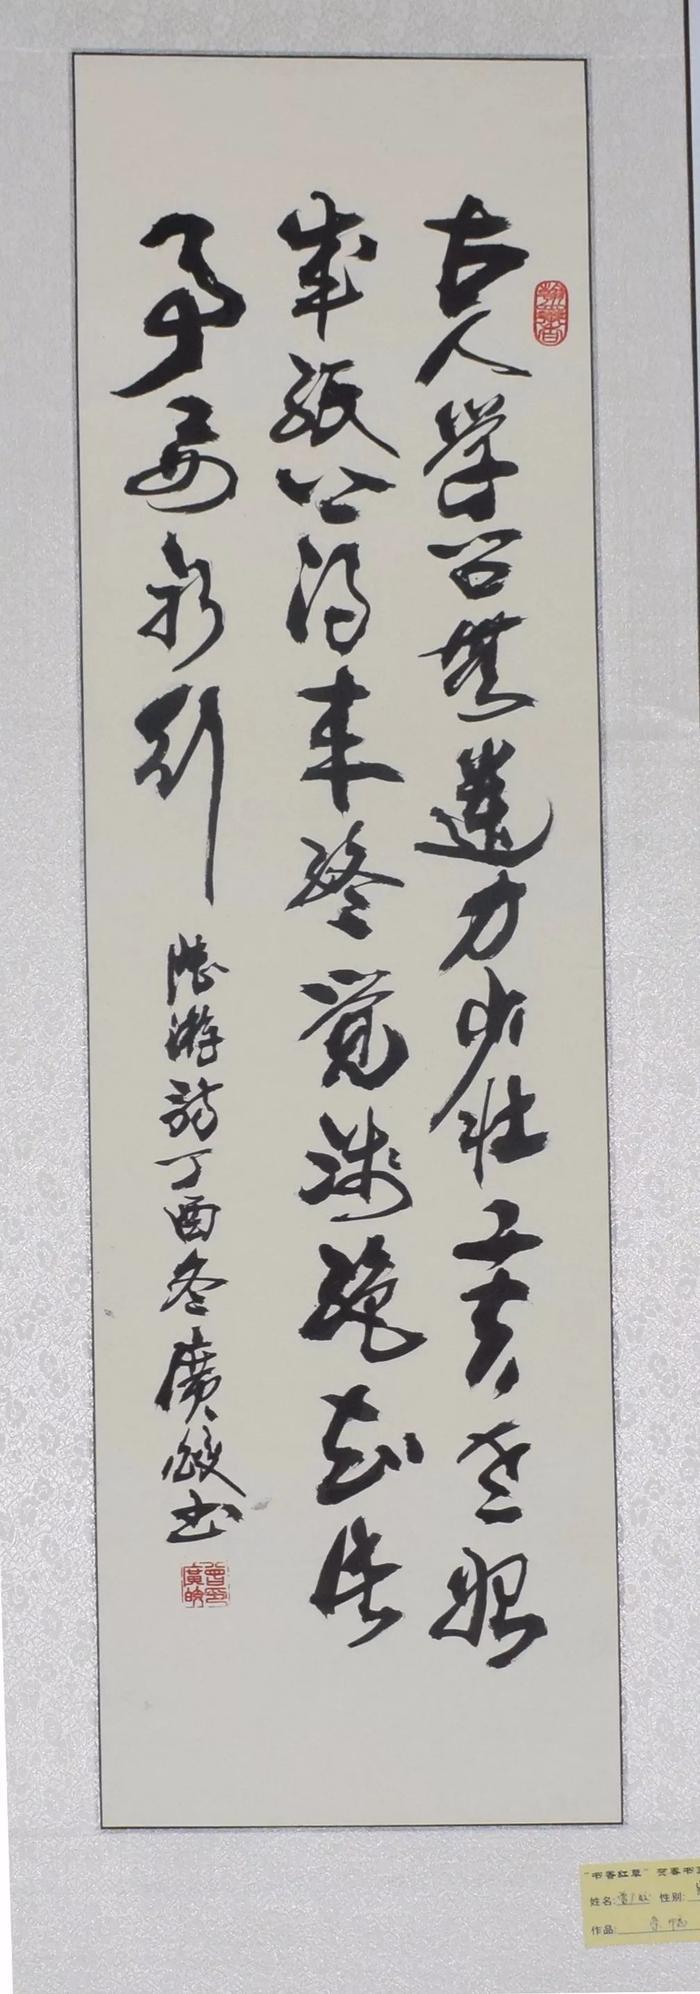 古人学问无遗力少壮工夫老始
成纸上得来终觉浅绝知此
事要躬行
陆游诗丁酉冬廣皎书
曾印廣皎
"书香红草"
姓名:
性别:
作品: